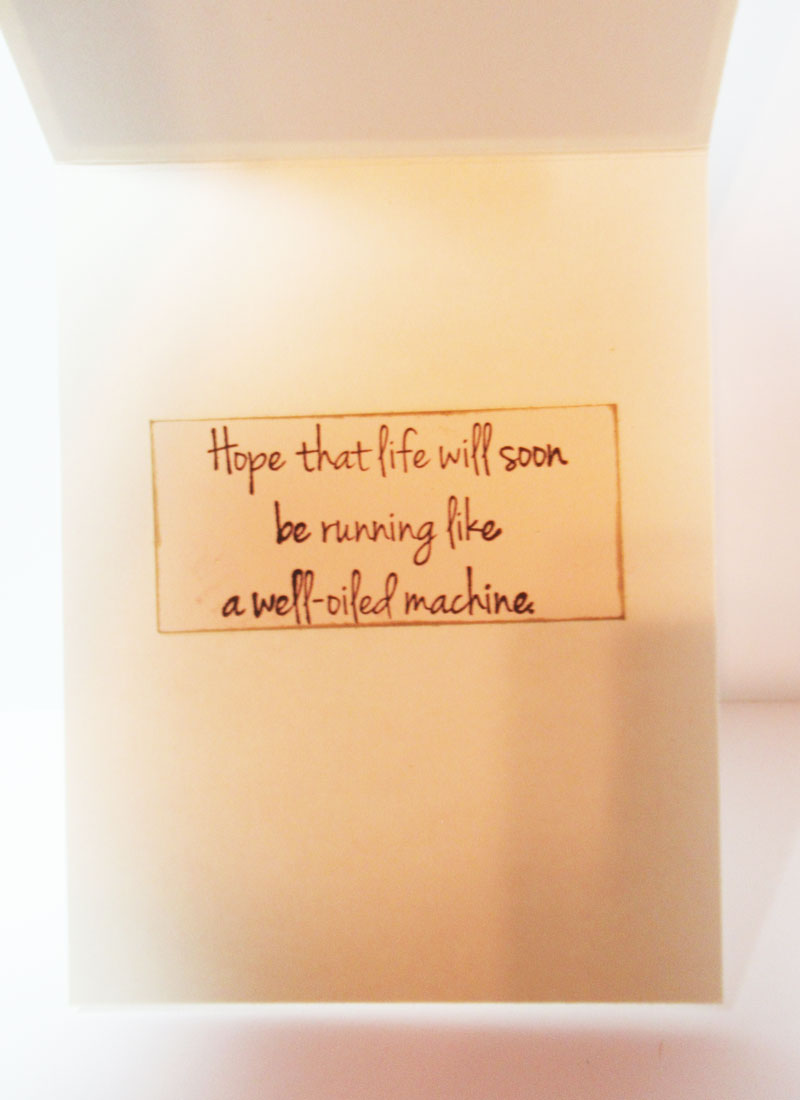 Hope that life will soon
be running like
a well-oiled machine.